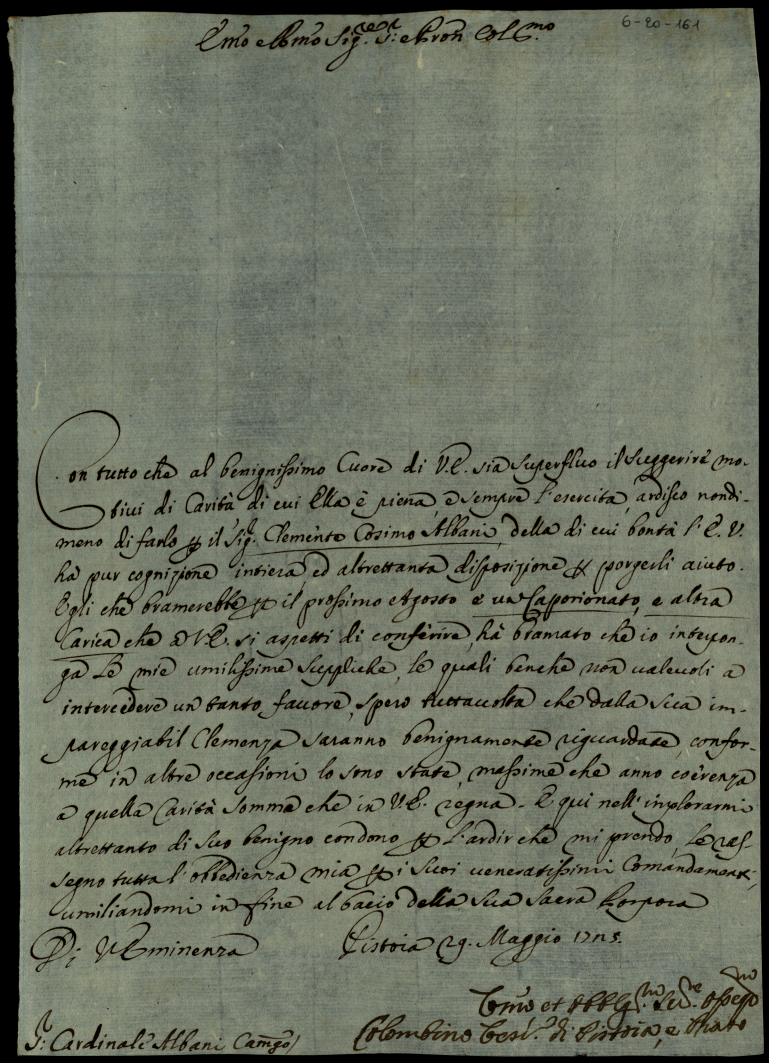 6-20-161
Em̃o e Rm̃o Sig.re S.r e Pron Col.mo
Con tutto che al benignissimo Cuore di V.E. sia superfluo il suggerire mo-
tivi di Carità di cui Ella è piena, e sempre l'esercita, ardisco nondi-
meno di farlo p il Sig.r Clemente Cosimo Albani, della di cui bontà l'E.V.
ha pur cognizione intiera, ed altrettanta disposizione p porgerli aiuto.
Egli che bramerebbe p il prossimo Agosto e un Caporionato, e altra
Carica che a V.E. si aspetti di conferire, hà bramato che io interpon-
ga le mie umilissime suppliche, le quali benche non valevoli a
intercedere un tanto favore, spero tuttavolta che dalla sua im-
pareggiabil Clemenza saranno benignamente riguardate, confor-
me in altre occasioni lo sono state, massime che anno coèrenza
a quella Carità somma che in V.E. regna. E qui nell'implorarmi
altrettanto di suo benigno condono p l'ardir che mi prendo, le ras-
segno tutta l'obbedienza mia p i suoi veneratissimi Comandamenti,
umiliandomi in fine al bacio della sua Sacra Porpora
Di V Eminenza Pistoia 29. Maggio 1725.
Um̃o et Obblig.mo Se.re Osseq.mo
S.r Cardinale Albani Camgo/ Colombino Vesc.o di Pistoia, e Prato